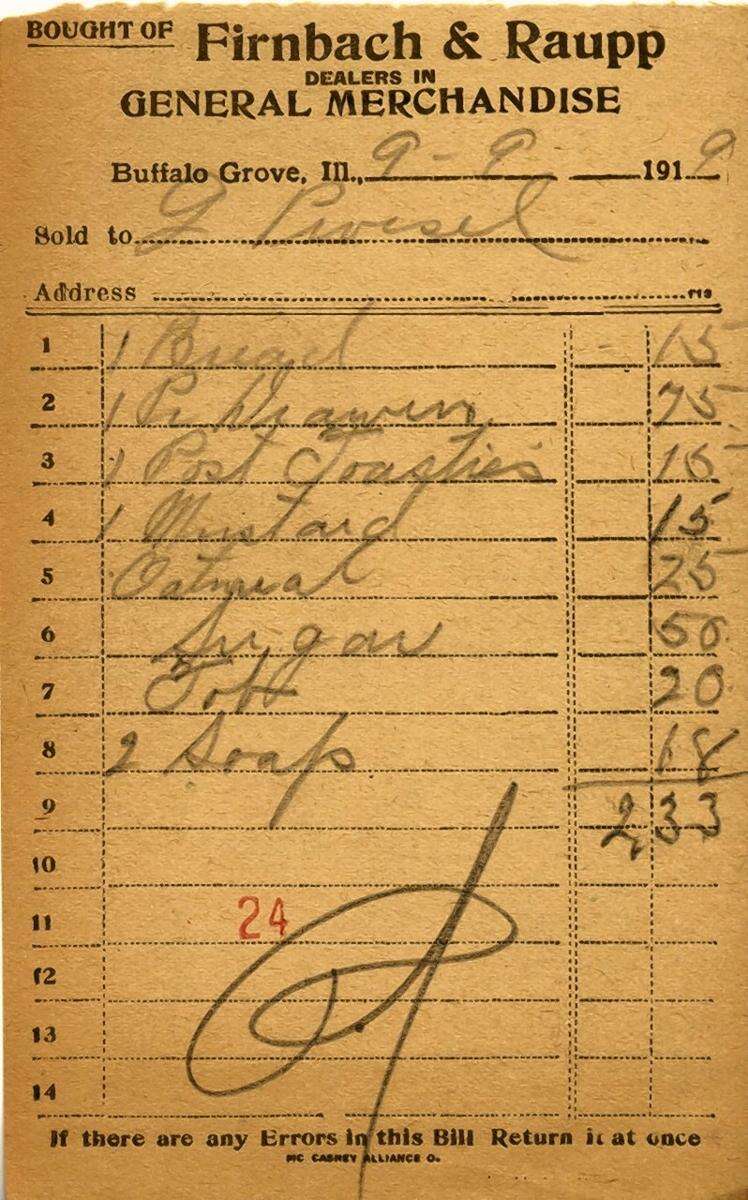 BOUGHT OF Firnbach & Raupp
DEALERS IN
GENERAL MERCHANDISE
Buffalo Grove, Ill., 9 - 9 1919
Sold to G
Address
1 1 Bread 15
2 1 Pr Drawers 75
3 1 Post Toasties 15
4 1 Mustard 15
5 Oatmeal 25
6 Sugar 50
7 Tob 20
8 2 Soap 18
9 2 33
10
11 24
12
13
14
If there are any Errors in this Bill Return it at once
ALLIANCE O.